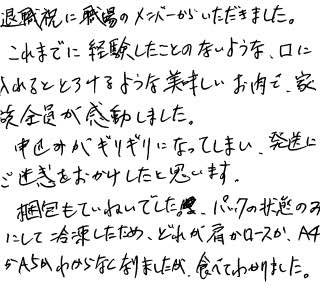 退職祝に職場のメンバーからいただきました。
これまでに経験したことのないような、口に
入れるととろけるような美味しいお肉で、家
族全員が感動しました。
申込みがギリギリになってしまい、発送に
ご迷惑をおかけしたと思います。
梱包もていねいでした。パックの状態のみ
にして冷凍したため、どれが肩かロースか、A4
かA5かわからなくなりましたが、食べてわかりました。